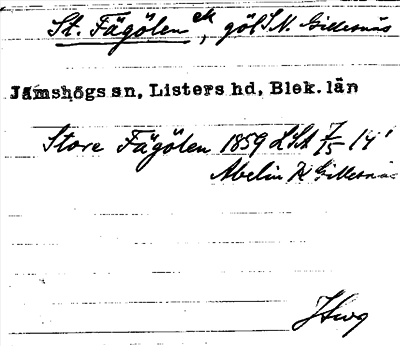 St. Fägölen ek, göl S.N. Gillesnäs
Jämshögs sn, Listers hd, Blek. län
Store Fägölen 1859 LSA 7/15 14'
Abelin K Gillesnäs